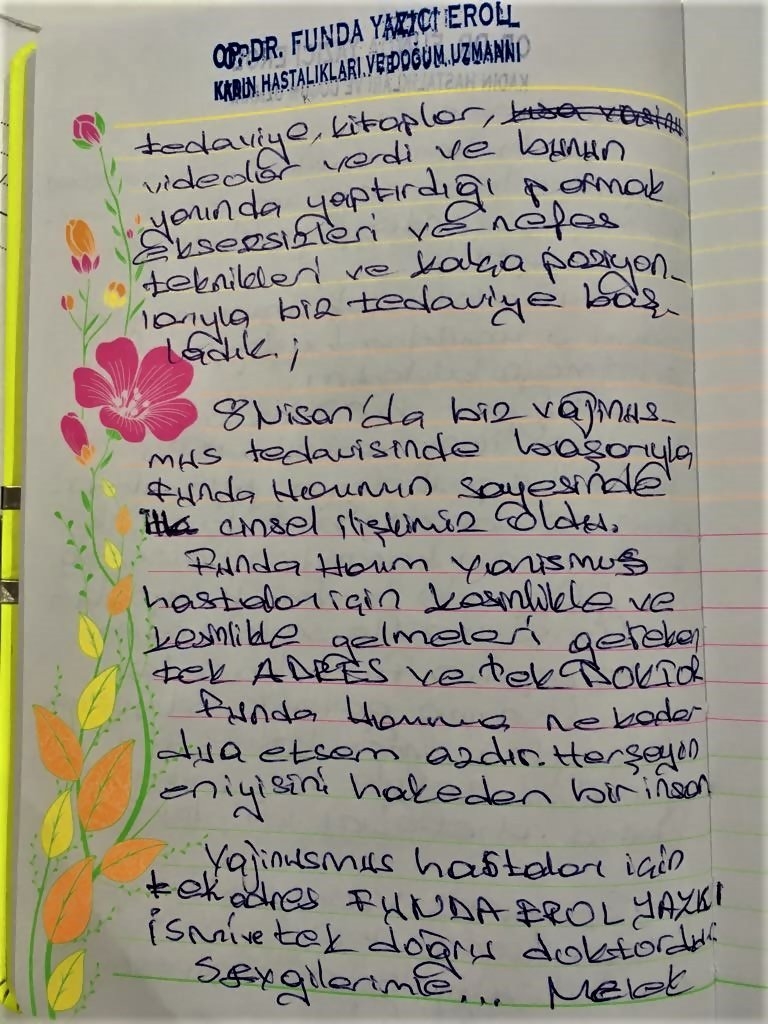 OP.DR. FUNDA YAZICI EROL
KADIN HASTALIKLARI VE DOĞUM UZMANI
tedaviye, kitaplar,
videolar verdi ve bunun
yanında yaptırdığı parmak
Eksersizleri ve nefes
teknikleri ve kalça pozisyon-
larıyla biz tedaviye baş-
ladık. ;
8 Nisan'da biz vajinus-
mus tedavisinde başarıyla
Funda Hanımın sayesinde
cinsel ilişkimiz oldu.
Funda Hanım vajinismus
hastaları için kesinlikle ve
kesinlikle gelmeleri gereken
tek ADRES ve tek DOKTOR
Funda Hanıma ne kadar
dua etsem azdır. Herşeyin
en iyisini hakeden bir insan
Vajinusmus hastaları için
tek adres FUNDA EROL YAZICI
ismi ve tek doğru doktordur.
Sevgilerimle... Melek